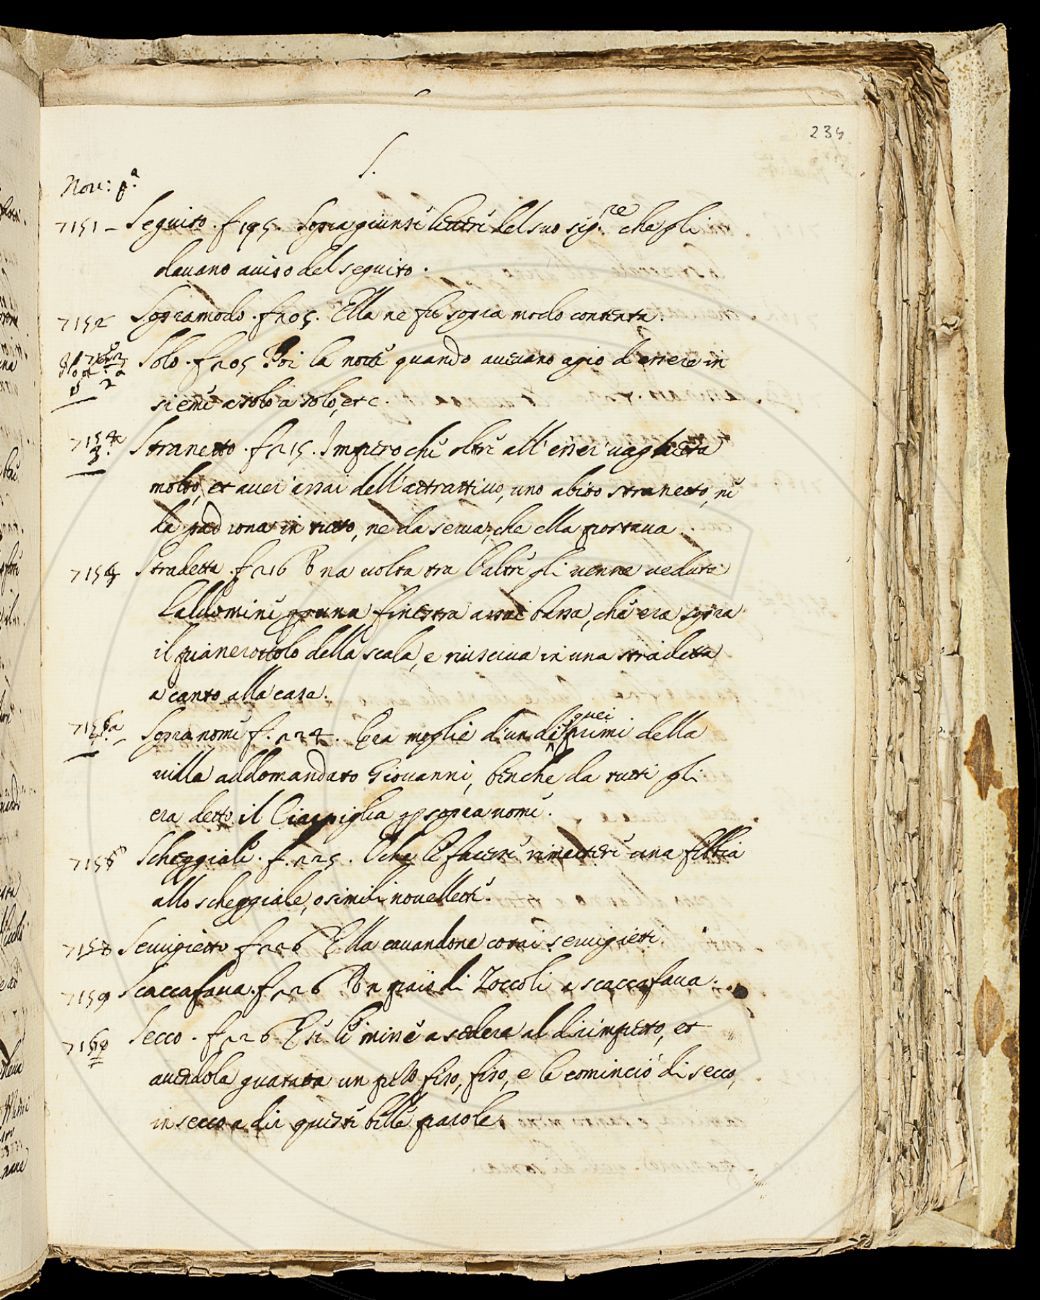 234
S.
Nov: p.ª
7151 – Seguito. f 195. Sopragiunse lettere del suo sig.re che gli
davano aviso del seguito.
7152 Sopra modo. f 205. Ella ne fu sopra modo contenta.
Solo. f 205 Poi la notte quando avevano agio d'essere in
sieme a solo a solo, etc.
7154 Stranetto. f 215. Impero che oltre all'esser vaghetta
molto, et aver assai dell'attrattivo, uno abito stranetto, ne
da padrona in tutto, ne da serva, che ella portava.
Stradetta. f 216 Una volta tra l'altre gli venne veduta
finestra assai bassa, che era sopra
il pianerottolo della scala, e riusciva in una stradetta
a canto alla casa.
Sopra nome f. 224. Era moglie d'un di quei primi della
villa addomandato Giovanni, benche da tutti gli
era detto il Ciarpiglia p sopra nome.
Scheggiale. f. 225. rimettere una fibbia
allo scheggiale, o simili novellette.
7158 Scuvigietto f 226 Ella cavandone cotai scuvigietti.
7159 Scaccafava. f 226 Un paio di Zoccoli a scaccafava.
Secco. f 226 E se le mise a sedere al dirimpeto, et
avendola guatata un pezzo fiso, fiso, e le cominciò di secco,
in secco a dir queste belle parole.